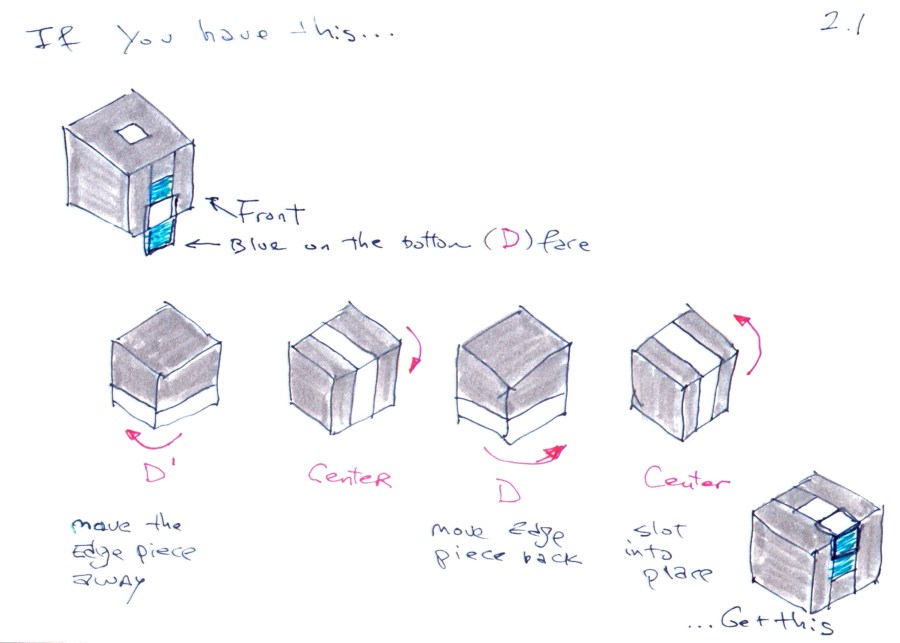 If you have this...
2.1
Front
Blue on the bottom (D) face
D'
Center
D
Center
move the
Edge piece
away
move Edge
piece back
slot
into
place
...Get this